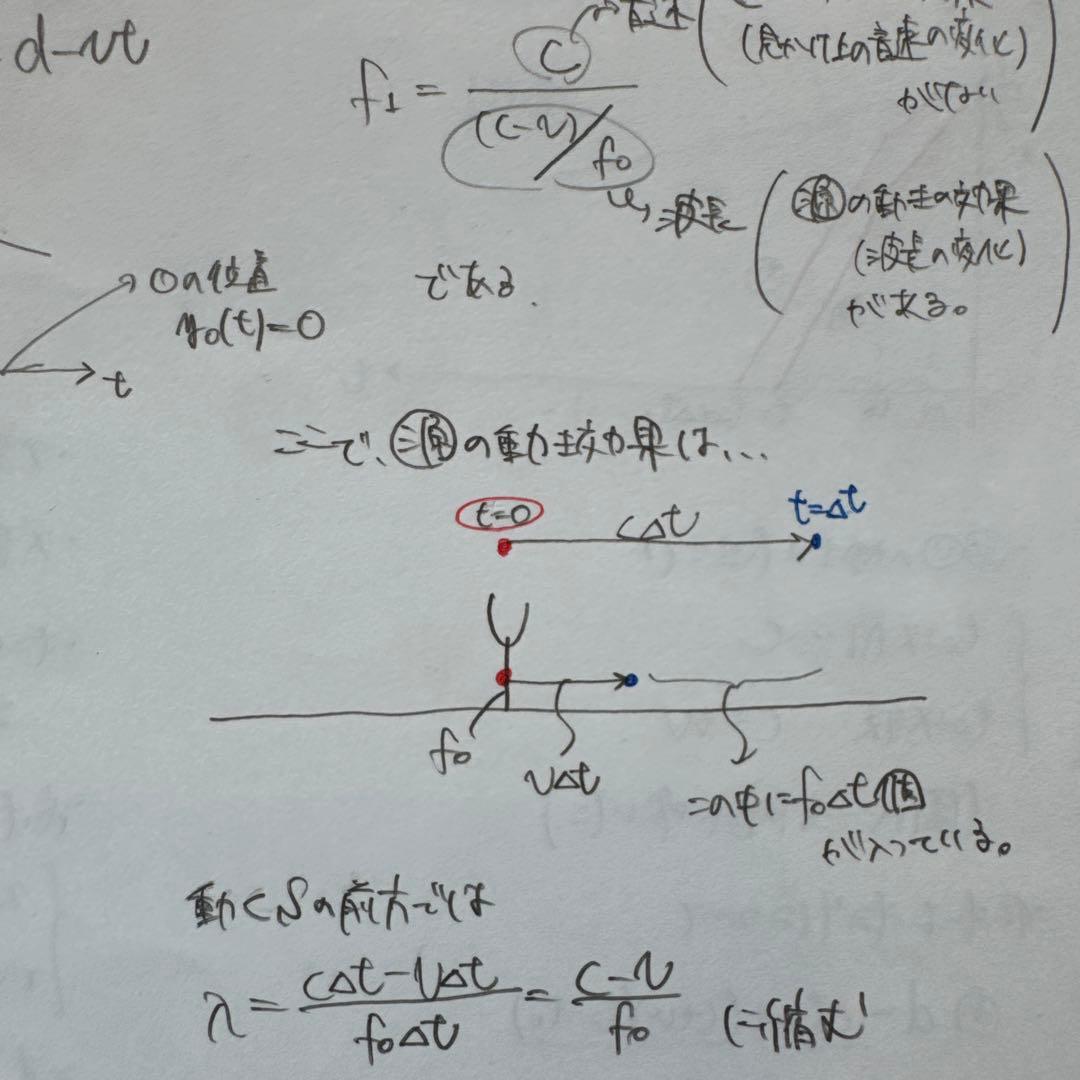 d-vt
f₁ = c / ((c-v)/f₀)
音速
(見かけ上の音速の変化)
がない
波長
源の動きの効果
(波長の変化)
がある。
Oの位置
y₀(t)=0
t
である.
ここで、源の動く効果は…
t=0
cΔt
t=Δt
f₀
vΔt
この中にf₀Δt個
が入っている。
動くSの前方では
λ = (cΔt-vΔt) / (f₀Δt) = (c-v) / f₀